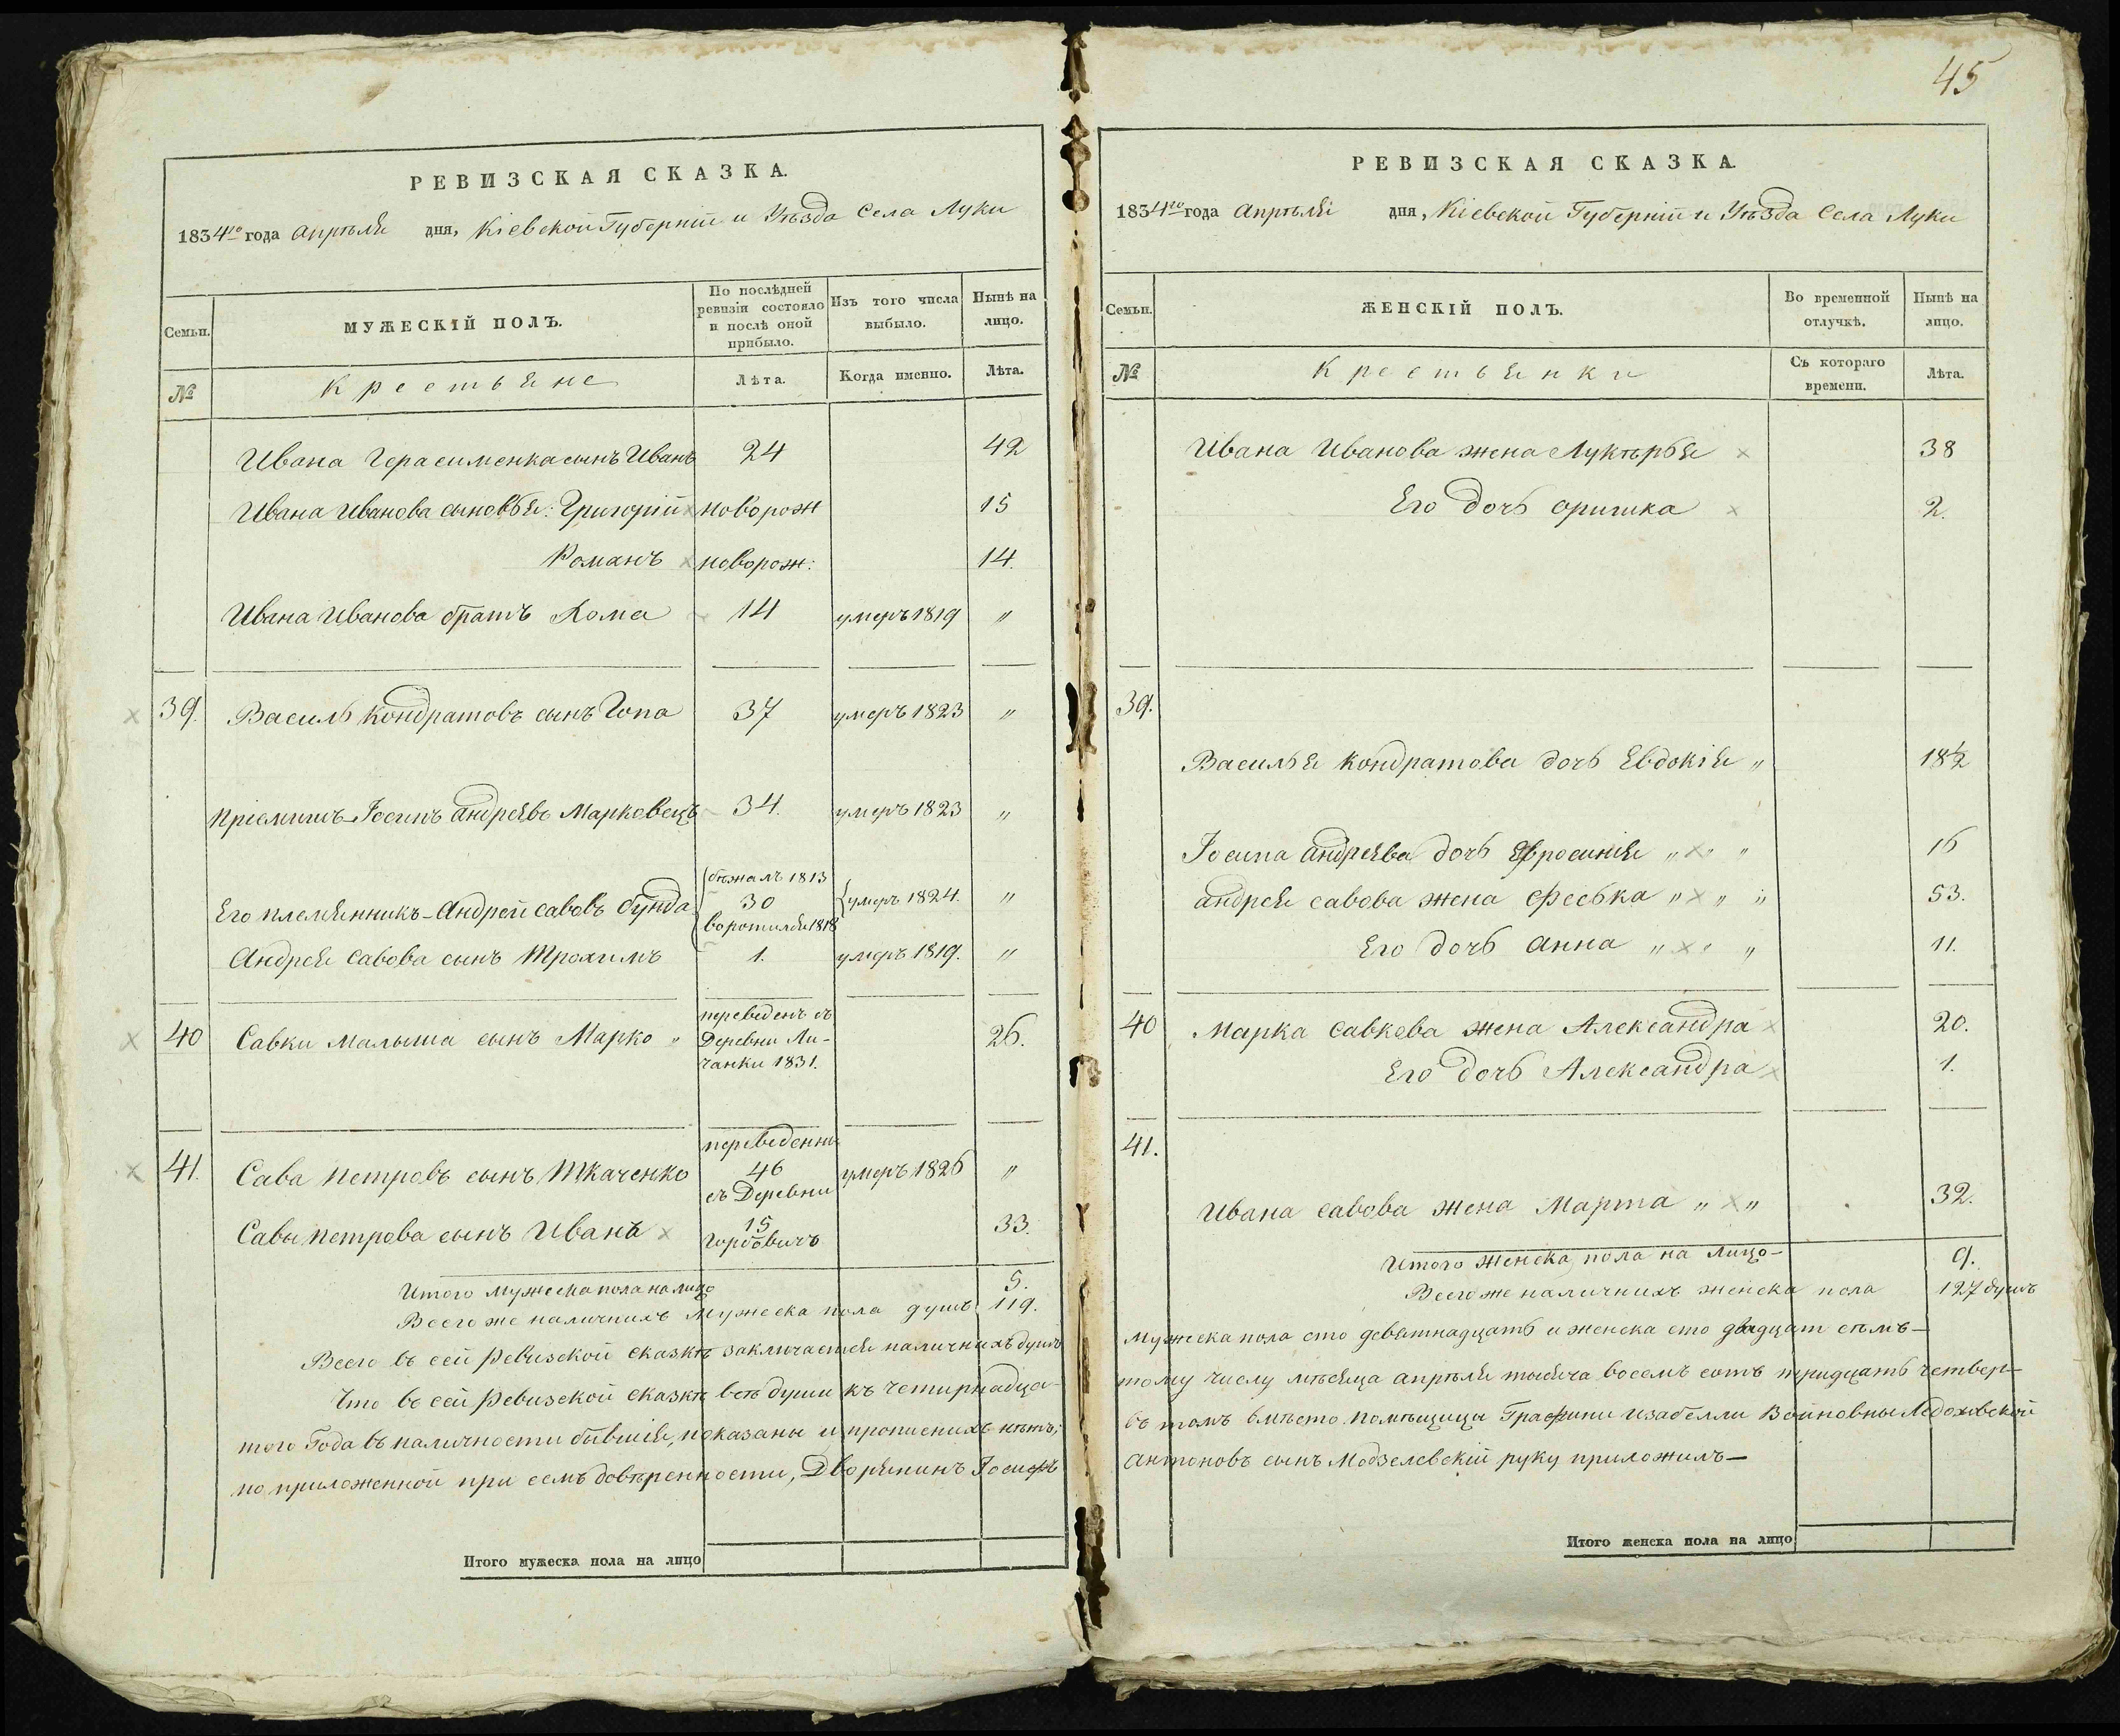 45
РЕВИЗСКАЯ СКАЗКА.
1834го года апрѣля дня, Кіевской Губерніи и Уѣзда Села Луки
Семьи.
МУЖЕСКІЙ ПОЛЪ.
По послѣдней
ревизіи состояло
и послѣ оной
прибыло.
Изъ того числа
выбыло.
Нынѣ на
лицо.
№
Крестьяне
Лѣта.
Когда именно.
Лѣта.
Ивана Герасименка сынъ Иванъ 24 42
Ивана Иванова сыновья: Григорій новорож 15
Романъ новорож: 14.
Ивана Иванова братъ Хома 14 умеръ 1819 "
39. Василь Кондратовъ сынъ Гопа 37 умеръ 1823 "
Пріемишъ Іосипъ андреявъ Марковецъ 34. умеръ 1823 "
бѣжалъ 1813
Его племянникъ Андрей савовъ бунда 30 умеръ 1824. "
воротился 1818
Андрея Савова сынъ Трохимъ 1. умеръ 1819. "
переведенъ съ
40 Савки Малыша сынъ Марко " Деревни Ли- 26.
чанки 1831.
переведенны
41. Сава Петровъ сынъ Ткаченко 46 умеръ 1826 "
съ Деревни
Савы Петрова сынъ Иванъ 15 33.
Горбовичъ
Итого мужеска пола на лицо 5.
Всего же наличнихъ мужеска пола душъ 119.
Всего въ сей Ревизской сказкѣ заключается наличнихъ душъ
Что въ сей Ревизской сказкѣ всѣ души къ четирнадца-
того Года въ наличности бывшія, показаны и прописнихъ нѣтъ;
по приложенной при семъ довѣренности, Дворянинъ Іосифъ
Итого мужеска пола на лицо
РЕВИЗСКАЯ СКАЗКА
1834го года апрѣля дня, Кіевской Губерніи и Уѣзда Села Луки
Семьи.
ЖЕНСКІЙ ПОЛЪ.
Во временной
отлучкѣ.
Нынѣ на
лицо.
№
Крестьянки
Съ котораго
времени.
Лѣта.
Ивана Иванова жена Лукѣрья 38
Его дочь оришка 2.
39.
Василья Кондратова дочь Евдокія " 18½
Іосипа андреява дочь Ефросинія " " " 16
андрея савова жена Феська " " " 53.
Его дочь анна " " " 11.
40 Марка савкова жена Александра 20.
Его дочь Александра 1.
41.
Ивана савова жена Марта " " 32.
Итого женска пола на лицо- 9.
Всего же наличнихъ женска пола 127 душъ
мужеска пола сто девятнадцать и женска сто двадцат сѣмъ-
тому числу мѣсяца апрѣля тысяча восемъ сотъ тридцать четвер-
въ томъ вмѣсто помѣщицы Графини изабелли Войновны Ледоховской
антоновъ сынъ Модзелевскій руку приложилъ-
Итого женска пола на лицо